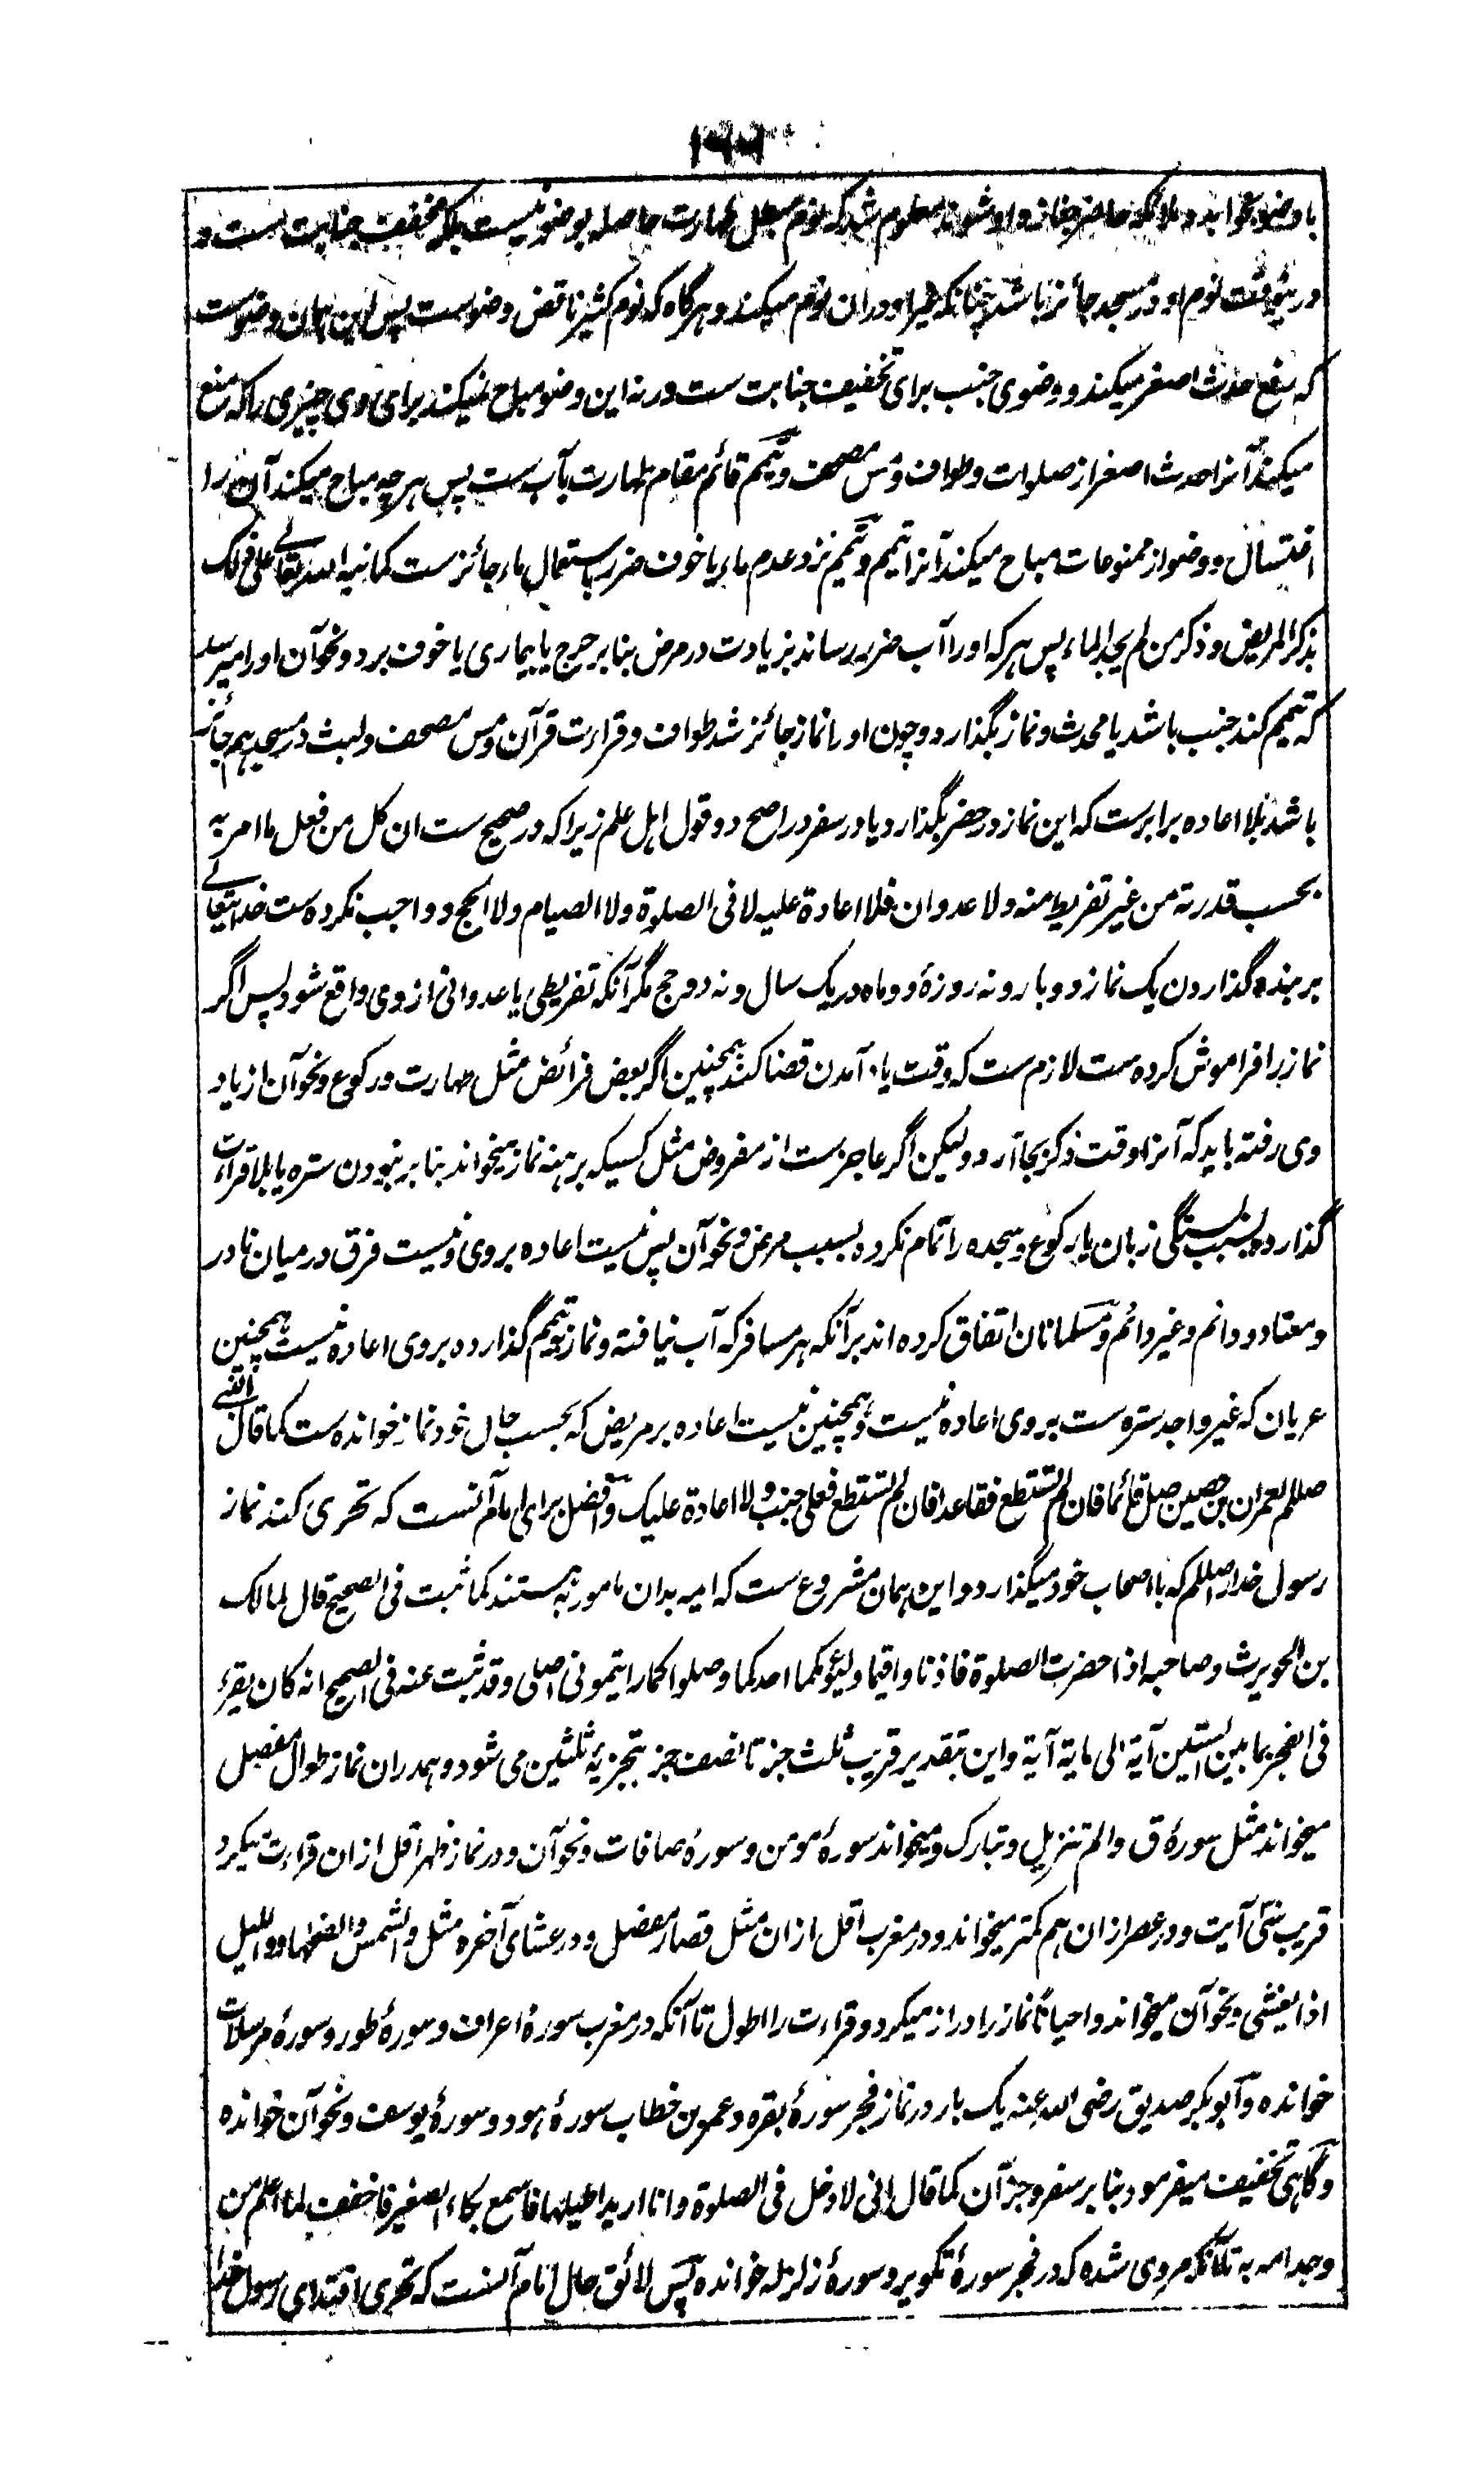 باوضو بخوابد و ملائکه حاضر جنازه او شوند معلوم شد که نوم مبطل طهارت حاصله بوضو نیست بلکه مخفف جنابت ست و
درینوقت نوم او در مسجد جائز باشد چنانکه غیر او دران نوم میکند و هرگاه که نوم کثیر ناقض وضوست پس این همان وضوست
که رفع حدث اصغر میکند و وضوی جنب برای تخفیف جنابت ست ورنه این وضو مباح نمیکند برای وی چیزی را که منع
میکند آنرا حدث اصغر از صلوات و طواف و مس مصحف و تیمم قائم مقام طهارت بآب ست پس هر چه مباح میکند آن را
اغتسال و وضو از ممنوعات مباح میکند آنرا تیمم و تیمم نزد عدم ماء یا خوف ضرر باستعمال ماء جائز ست کما نبه الله تعالے علی ذلک
بذکر المریض و ذکر من لم یجد الماء پس هر که اورا آب ضرر رساند بزیادت در مرض بنا بر جرح یا بیماری یا خوف برد و نحو آن اورا میرسد
که تیمم کند جنب باشد یا محدث و نماز بگذارد و چون اورا نماز جائز شد طواف و قراءت قرآن و مس مصحف و لبث در مسجد هم جائز
باشد بلا اعاده برابر ست که این نماز در حضر بگذارد یا در سفر در اصح دو قول اهل علم زیرا که در صحیح ست ان کل من فعل ما امر به
بحسب قدرته من غیر تفریط منه ولا عدوان فلا اعادة علیه لا فی الصلوة ولا الصیام ولا الحج و واجب نکرده ست خدایتعالے
بر بنده گذاردن یک نماز دوبار و نه روزۀ دو ماه در یک سال و نه دو حج مگر آنکه تفریطی یا عدوانی از وی واقع شود پس اگر
نماز را فراموش کرده ست لازم ست که وقت یاد آمدن قضا کند همچنین اگر بعض فرائض مثل طهارت و رکوع و نحو آن از یاد
وی رفته باید که آنرا وقت ذکر بجا آرد و لیکن اگر عاجز ست از مفروض مثل کسیکه برهنه نماز میخواند بنا بر نبودن ستره یا بلا قراءت
گذارده بسبب بستگی زبان یا رکوع و سجده را تمام نکرده بسبب مرض و نحو آن پس نیست اعاده بروی و نیست فرق درمیان نادر
و معتاد و دائم و غیر دائم و مسلمانان اتفاق کرده اند بر آنکه هر مسافر که آب نیافته و نماز بتیمم گذارده بروی اعاده نیست همچنین
عریان که غیر واجد ستره ست بروی اعاده نیست و همچنین نیست اعاده بر مریض که بحسب حال خود نماز خوانده ست کما قال النبے
صللم لعمران بن حصین صل قائما فان لم تستطع فقاعدا فان لم تستطع فعلی جنب ولا اعادة علیک و افضل برای امام آنست که تحری کند نماز
رسول خدا صللم که با اصحاب خود میگذارد و این همان مشروع ست که ایمه بدان مامور به هستند کما ثبت فی الصحیح قال لمالک
بن الحویرث و صاحبه اذا حضرت الصلوة فاذنا و اقیما و لیؤمکما احدکما و صلوا کما رایتمونی اصلی و قد ثبت عنه فی الصحیح انه کان یقرء
فی الفجر بما بین الستین آیة الی مایة آیة و این بتقدیر قریب ثلث جز تا نصف جز بتجزیۀ ثلثین می شود و همدران نماز طوال مفصل
میخواند مثل سورۀ ق و الم تنزیل و تبارک و میخواند سورۀ مومن و سورۀ صافات و نحو آن و در نماز ظهر اقل ازان قراءت میکرد
قریب سی آیت و در عصر ازان هم کمتر میخواند و در مغرب اقل ازان مثل قصار مفصل و در عشای آخره مثل والشمس والضحها و واللیل
اذا یغشی و نحو آن میخواند و احیاناً نماز را دراز میکرد و قراءت را اطول تا آنکه در مغرب سورۀ اعراف و سورۀ طور و سورۀ مرسلات
خوانده و ابوبکر صدیق رضی الله عنه یک بار در نماز فجر سورۀ بقره و عمر بن خطاب سورۀ هود و سورۀ یوسف و نحو آن خوانده
و گاهی تخفیف میفرمود بنا بر سفر و جز آن کما قال انی لادخل فی الصلوة و انا ارید اطیلها فاسمع بکاء الصغیر فاخفف لما اعلم من
وجد امه به تا آنکه مروی شده که در فجر سورۀ تکویر و سورۀ زلزله خوانده پس لائق حال امام آنست که تحری اقتدای رسول خدا